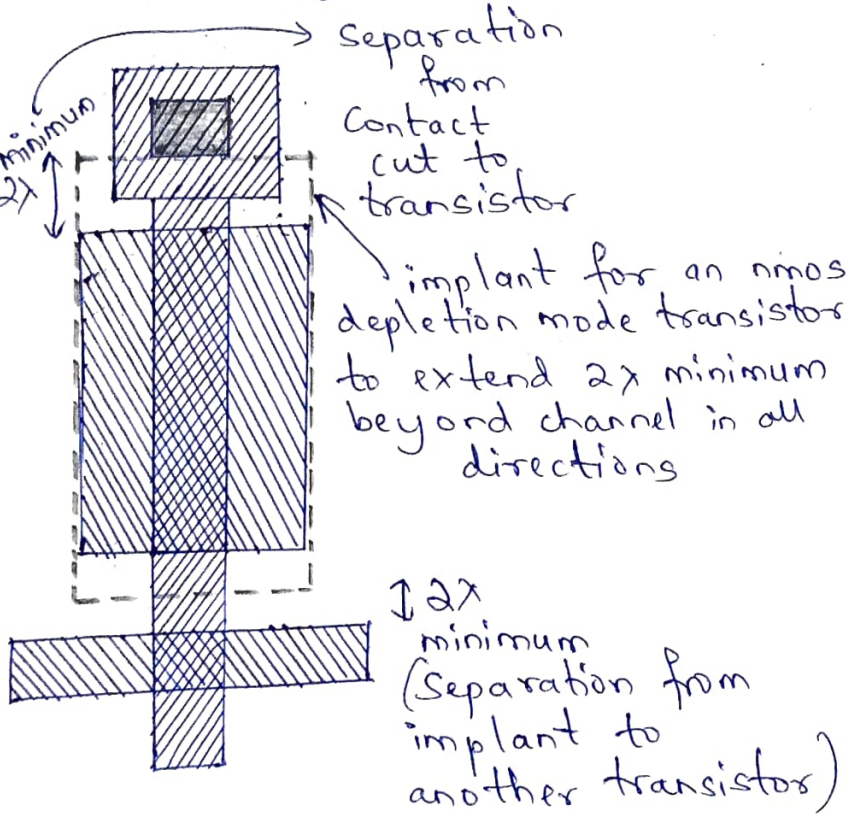 Separation
from
Contact
cut to
transistor
minimum
2λ
implant for an nmos
depletion mode transistor
to extend 2λ minimum
beyond channel in all
directions
2λ
minimum
(Separation from
implant to
another transistor)